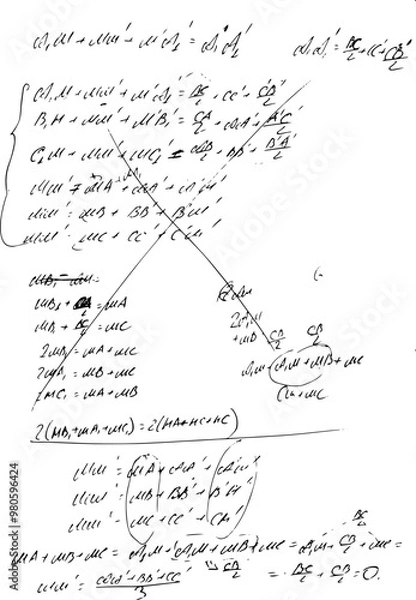 A₁M + MM' + M'A₁' = A₁A₁'    A₁A₁' = BC/2 + CC' + C'B'/2
A₁M + MM' + M'A₁' = BC/2 + CC' + C'B'/2
B₁M + MM' + M'B₁' = CA/2 + AA' + A'C'/2
C₁M + MM' + MC₁' = AB/2 + BB' + B'A'/2
MM' = MA + AA' + A'M'
MM' = MB + BB' + B'M'
MM' = MC + CC' + C'M'
MB₁ + = MA
MB₁ + = MC
2MB₁ = MA + MC
2MA₁ = MB + MC
2MC₁ = MA + MB
2A₁M
+ MB CB/2 CB/2
A₁M + A₁M + MB + MC
2(MB₁ + MA₁ + MC₁) = 2(MA + MC + MC)
MM' = MA + AA' + A'M'
MM' = MB + BB' + B'M'
MM' = MC + CC' + C'M'
BC/2
MA + MB + MC = A₁M + A₁M + MB + MC = A₁M + CB/2 + MC =
MM' = AA' + BB' + CC'/3    CB/2    = BC/2 + CB/2 = 0.
Adobe Stock | #980596424